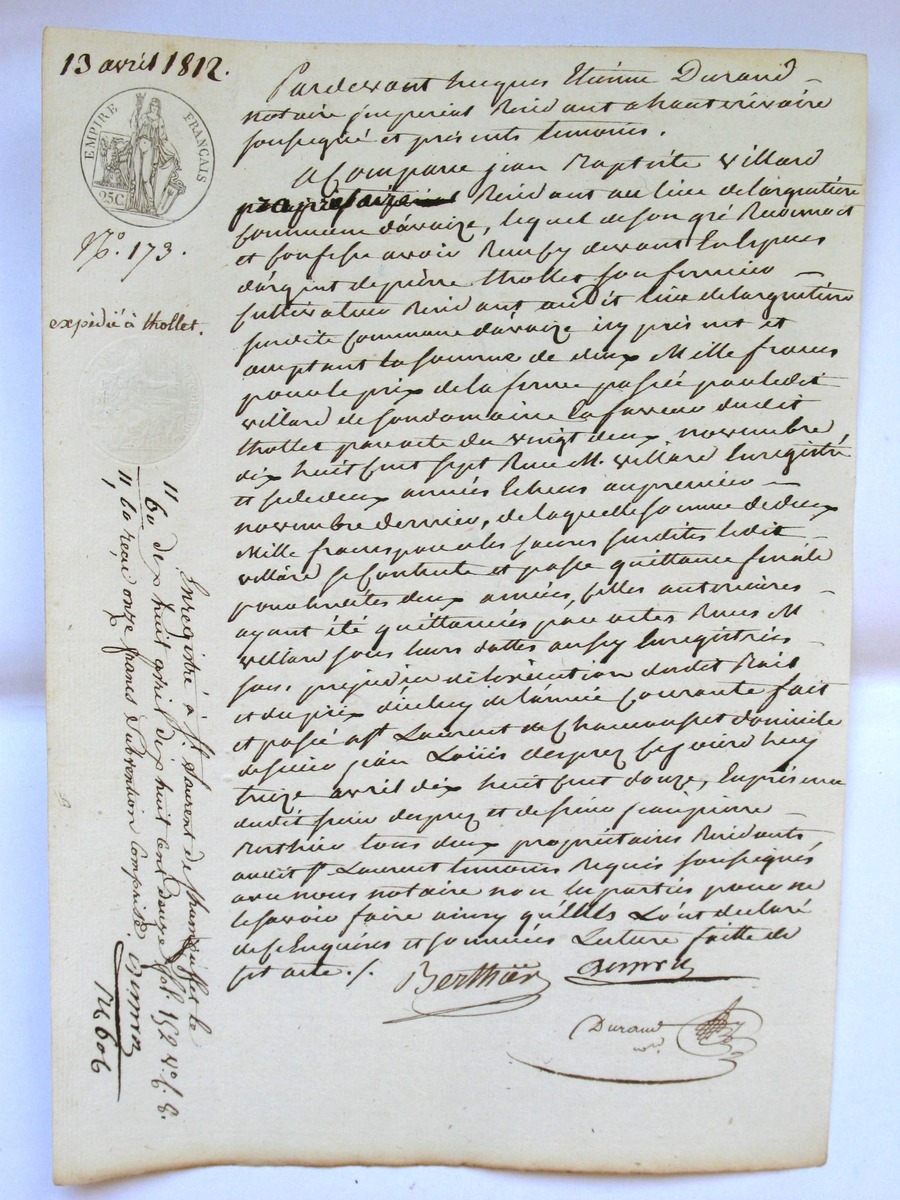 13 avril 1812.
EMPIRE FRANÇAIS
25C.
N.º 173.
expédié à thollet.
Pardevant hugues Etienne Durand
notaire imperial Residant a hauterivoire
soussigné et présents temoins.
a Comparu jean Baptiste villard
propriétaire Residant au lieu de largentière
Commune d'avaize, lequel de son gré Reconnoit
et Confesse avoir Reçu cy devant En Espèces
d'argent de pierre thollet son fermier
Cultivateur Residant audit lieu de largentière
susdite Commune d'avaize icy présent et
acceptant la somme de deux Mille francs
pour le prix de la ferme passée par ledit
villard de son domaine En faveur dudit
thollet par acte du vingt deux novembre
dix huit cent sept Reçu M. villard Enregistré
et ce de deux années Echues au premier
novembre dernier, de laquelle somme de deux
Mille francs pour les Causes susdites ledit
villard se Contente et passe quittance finale
pour lesdites deux années, celles anterieures
ayant été quittancées par actes Reçus M
villard sous leurs dattes aussy Enregistrées
sans préjudice de l'exécution dudit Bail
et du prix d'icelui de l'année Courante fait
et passé a St Laurent de Chamousset domicile
de sieur jean Louis desprez Ce jourd'huy
treize avril dix huit cent douze, En présence
dudit sieur desprez et de sieur jean pierre
Berthier tous deux propriétaires Residants
audit St. Laurent temoins Requis soussignés
avec nous notaire non les parties pour ne
le savoir faire ainsy qu'Elles L'ont declaré
de ce Enquises et sommées Lecture faitte de
cet acte ./.
Berthier
Durand
nre.
Enregistré à St. Laurent de Chamousset le
dix huit avril dix huit cent douze fol. 152 vº c. 8.
reçu onze francs subvention Comprise.